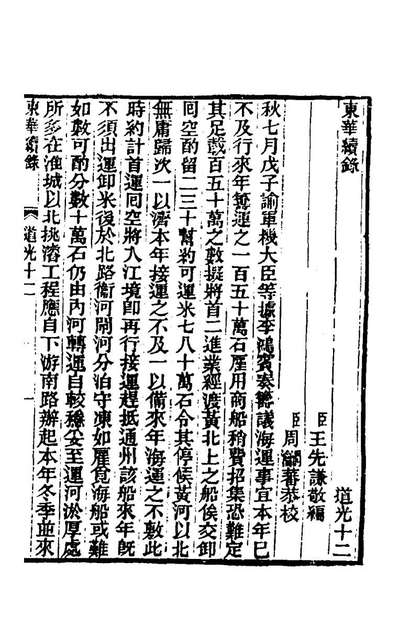 東華續錄
道光十二
臣王先謙敬編
臣周潤蕃恭校
秋七月戊子諭軍機大臣等據李鴻賓奏籌議海運事宜本年已
不及行來年籌運之一百五十萬石雇用商船稍費招集恐難定
其足載百五十萬之數擬將首二進業經渡黃北上之船俟交卸
囘空酌留二三十幫約可運米七八十萬石令其停候黃河以北
無庸歸次一以濟本年接運之不及一以備來年海運之不敷此
時約計首運囘空將入江境卽再行接運趕抵通州該船來年旣
不須出運卸米後於北路衞河閘河分泊守凍如雇覓海船或難
如數可酌分數十萬石仍由內河轉運自較穩妥至運河淤厚處
所多在淮城以北挑濬工程應自下游南路辦起本年冬季並來
東華續錄
道光十二